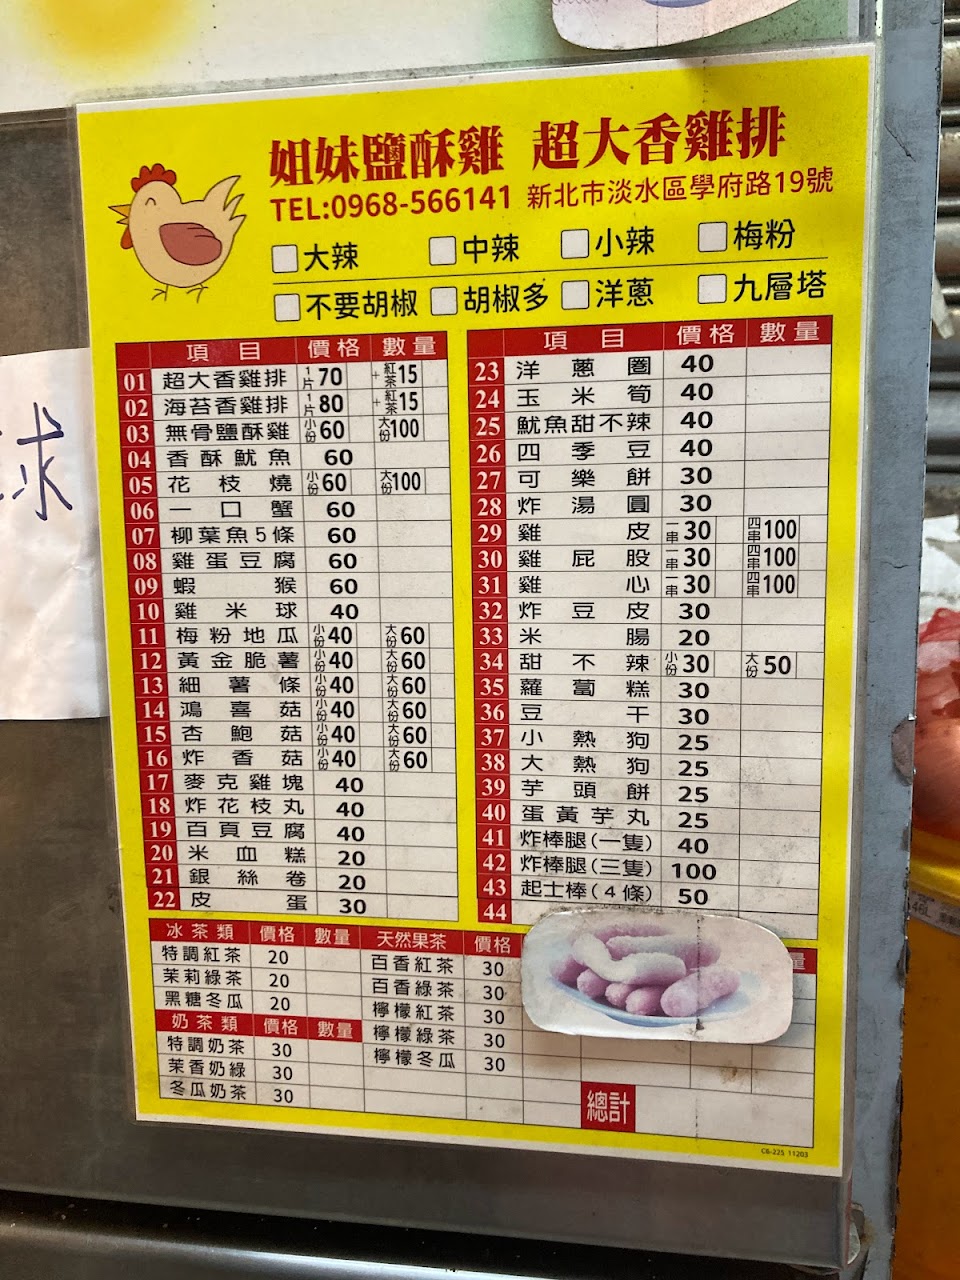 姐妹鹽酥雞 超大香雞排
TEL:0968-566141 新北市淡水區學府路19號
大辣 中辣 小辣 梅粉
不要胡椒 胡椒多 洋蔥 九層塔
項目 價格 數量
01 超大香雞排 1片70 +紅茶15
02 海苔香雞排 1片80 +紅茶15
03 無骨鹽酥雞 小份60 大份100
04 香酥魷魚 60
05 花枝燒 小份60 大份100
06 一口蟹 60
07 柳葉魚5條 60
08 雞蛋豆腐 60
09 蝦猴 60
10 雞米球 40
11 梅粉地瓜 小份40 大份60
12 黃金脆薯 小份40 大份60
13 細薯條 小份40 大份60
14 鴻喜菇 小份40 大份60
15 杏鮑菇 小份40 大份60
16 炸香菇 小份40 大份60
17 麥克雞塊 40
18 炸花枝丸 40
19 百頁豆腐 40
20 米血糕 20
21 銀絲卷 20
22 皮蛋 30
項目 價格 數量
23 洋蔥圈 40
24 玉米筍 40
25 魷魚甜不辣 40
26 四季豆 40
27 可樂餅 30
28 炸湯圓 30
29 雞皮 一串30 四串100
30 雞屁股 一串30 四串100
31 雞心 一串30 四串100
32 炸豆皮 30
33 米腸 20
34 甜不辣 小份30 大份50
35 蘿蔔糕 30
36 豆干 30
37 小熱狗 25
38 大熱狗 25
39 芋頭餅 25
40 蛋黃芋丸 25
41 炸棒腿(一隻) 40
42 炸棒腿(三隻) 100
43 起士棒(4條) 50
44
冰茶類 價格 數量
特調紅茶 20
茉莉綠茶 20
黑糖冬瓜 20
奶茶類 價格 數量
特調奶茶 30
茉香奶綠 30
冬瓜奶茶 30
天然果茶 價格
百香紅茶 30
百香綠茶 30
檸檬紅茶 30
檸檬綠茶 30
檸檬冬瓜 30
量
總計
C6-225 11203
球